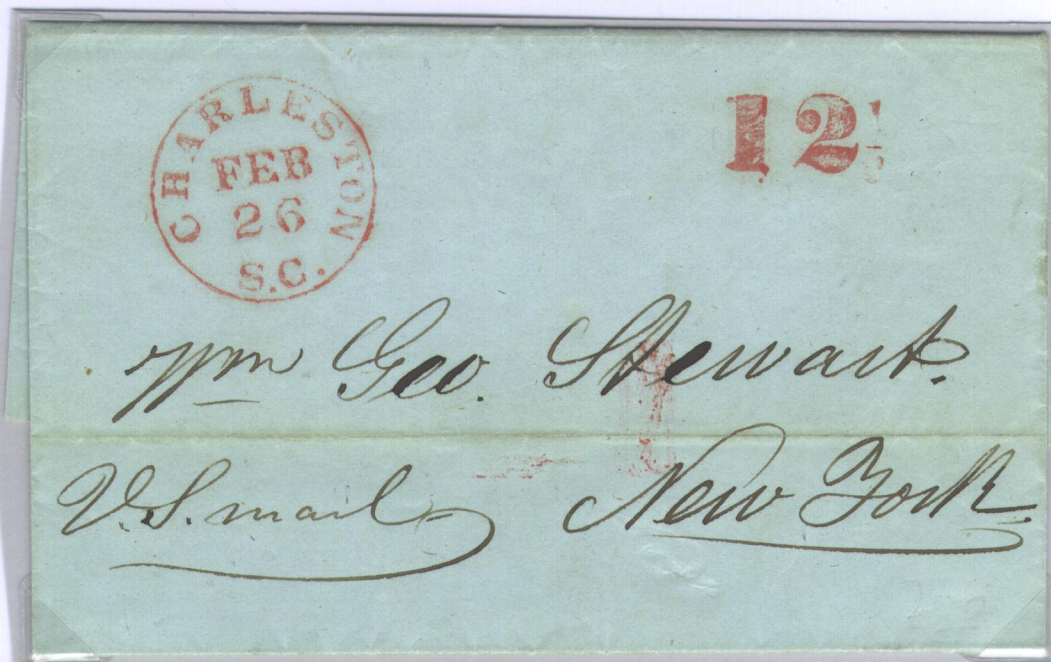 CHARLESTON
FEB
26
S.C.
12 1/2
Wm Geo. Stewart.
U.S. mail
New York.